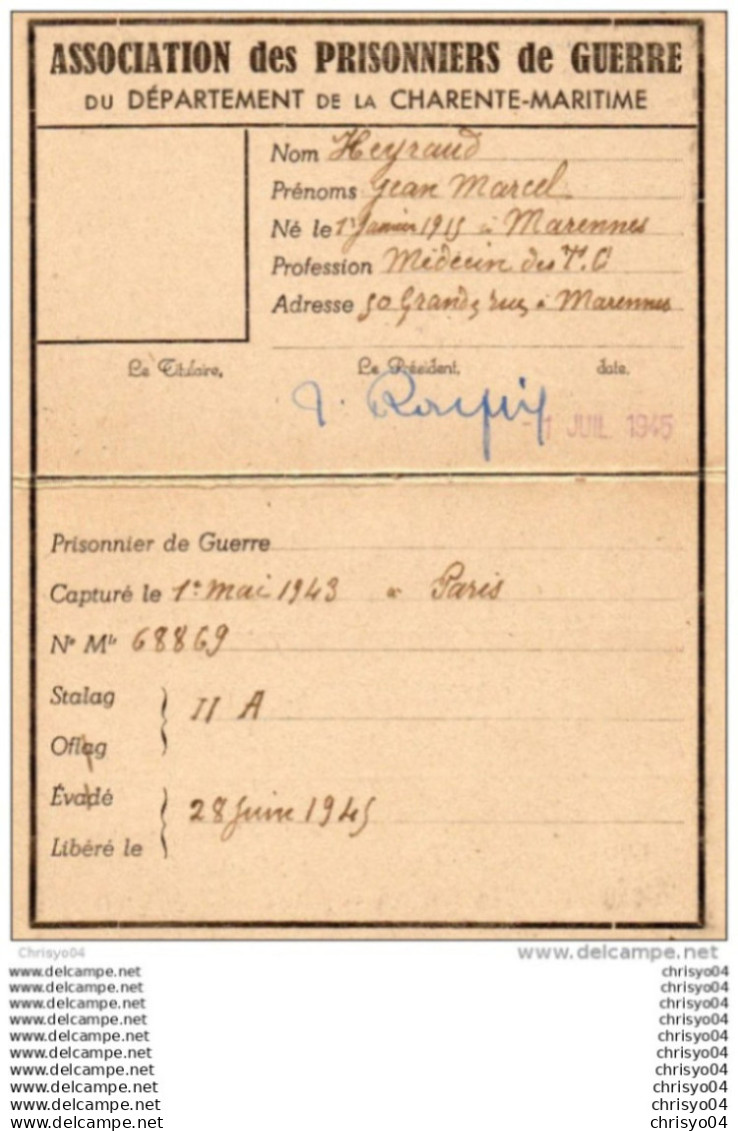 ASSOCIATION des PRISONNIERS de GUERRE
DU DÉPARTEMENT DE LA CHARENTE-MARITIME
Nom Heyraud
Prénoms Jean Marcel
Né le 1r Janvier 1915 à Marennes
Profession Médecin des T.C
Adresse 50 Grande rue à Marennes
Le Titulaire, Le Président, date.
1 JUIL 1945
Prisonnier de Guerre
Capturé le 1er mai 1943 à Paris
No Mle 68869
Stalag
II A
Oflag
Évadé
28 Juin 1945
Libéré le
Chrisyo04 www.delcampe.net
www.delcampe.net chrisyo04
www.delcampe.net chrisyo04
www.delcampe.net chrisyo04
www.delcampe.net chrisyo04
www.delcampe.net chrisyo04
www.delcampe.net chrisyo04
www.delcampe.net chrisyo04
www.delcampe.net chrisyo04
www.delcampe.net chrisyo04
www.delcampe.net chrisyo04